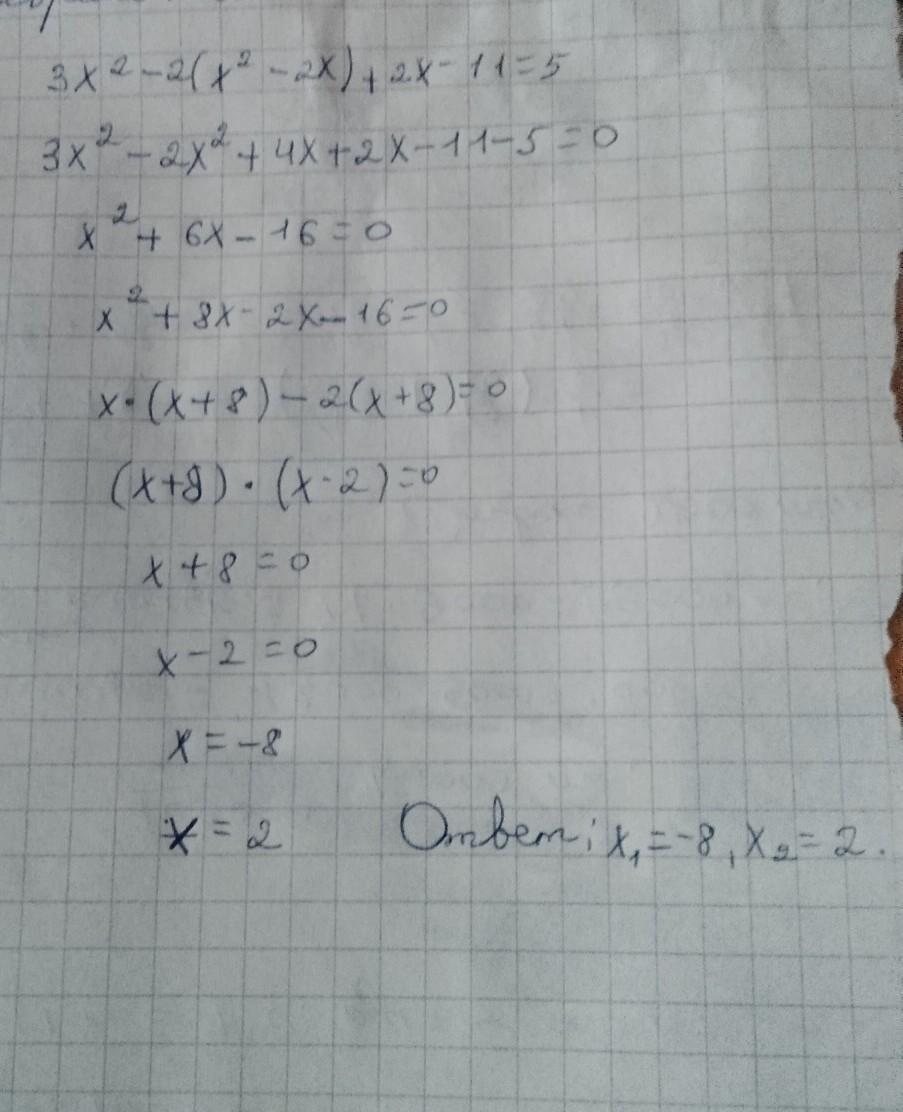 3x² - 2(x² - 2x) + 2x - 11 = 5
3x² - 2x² + 4x + 2x - 11 - 5 = 0
x² + 6x - 16 = 0
x² + 8x - 2x - 16 = 0
x · (x + 8) - 2(x + 8) = 0
(x + 8) · (x - 2) = 0
x + 8 = 0
x - 2 = 0
x = -8
x = 2 Ответ: x₁ = -8, x₂ = 2.